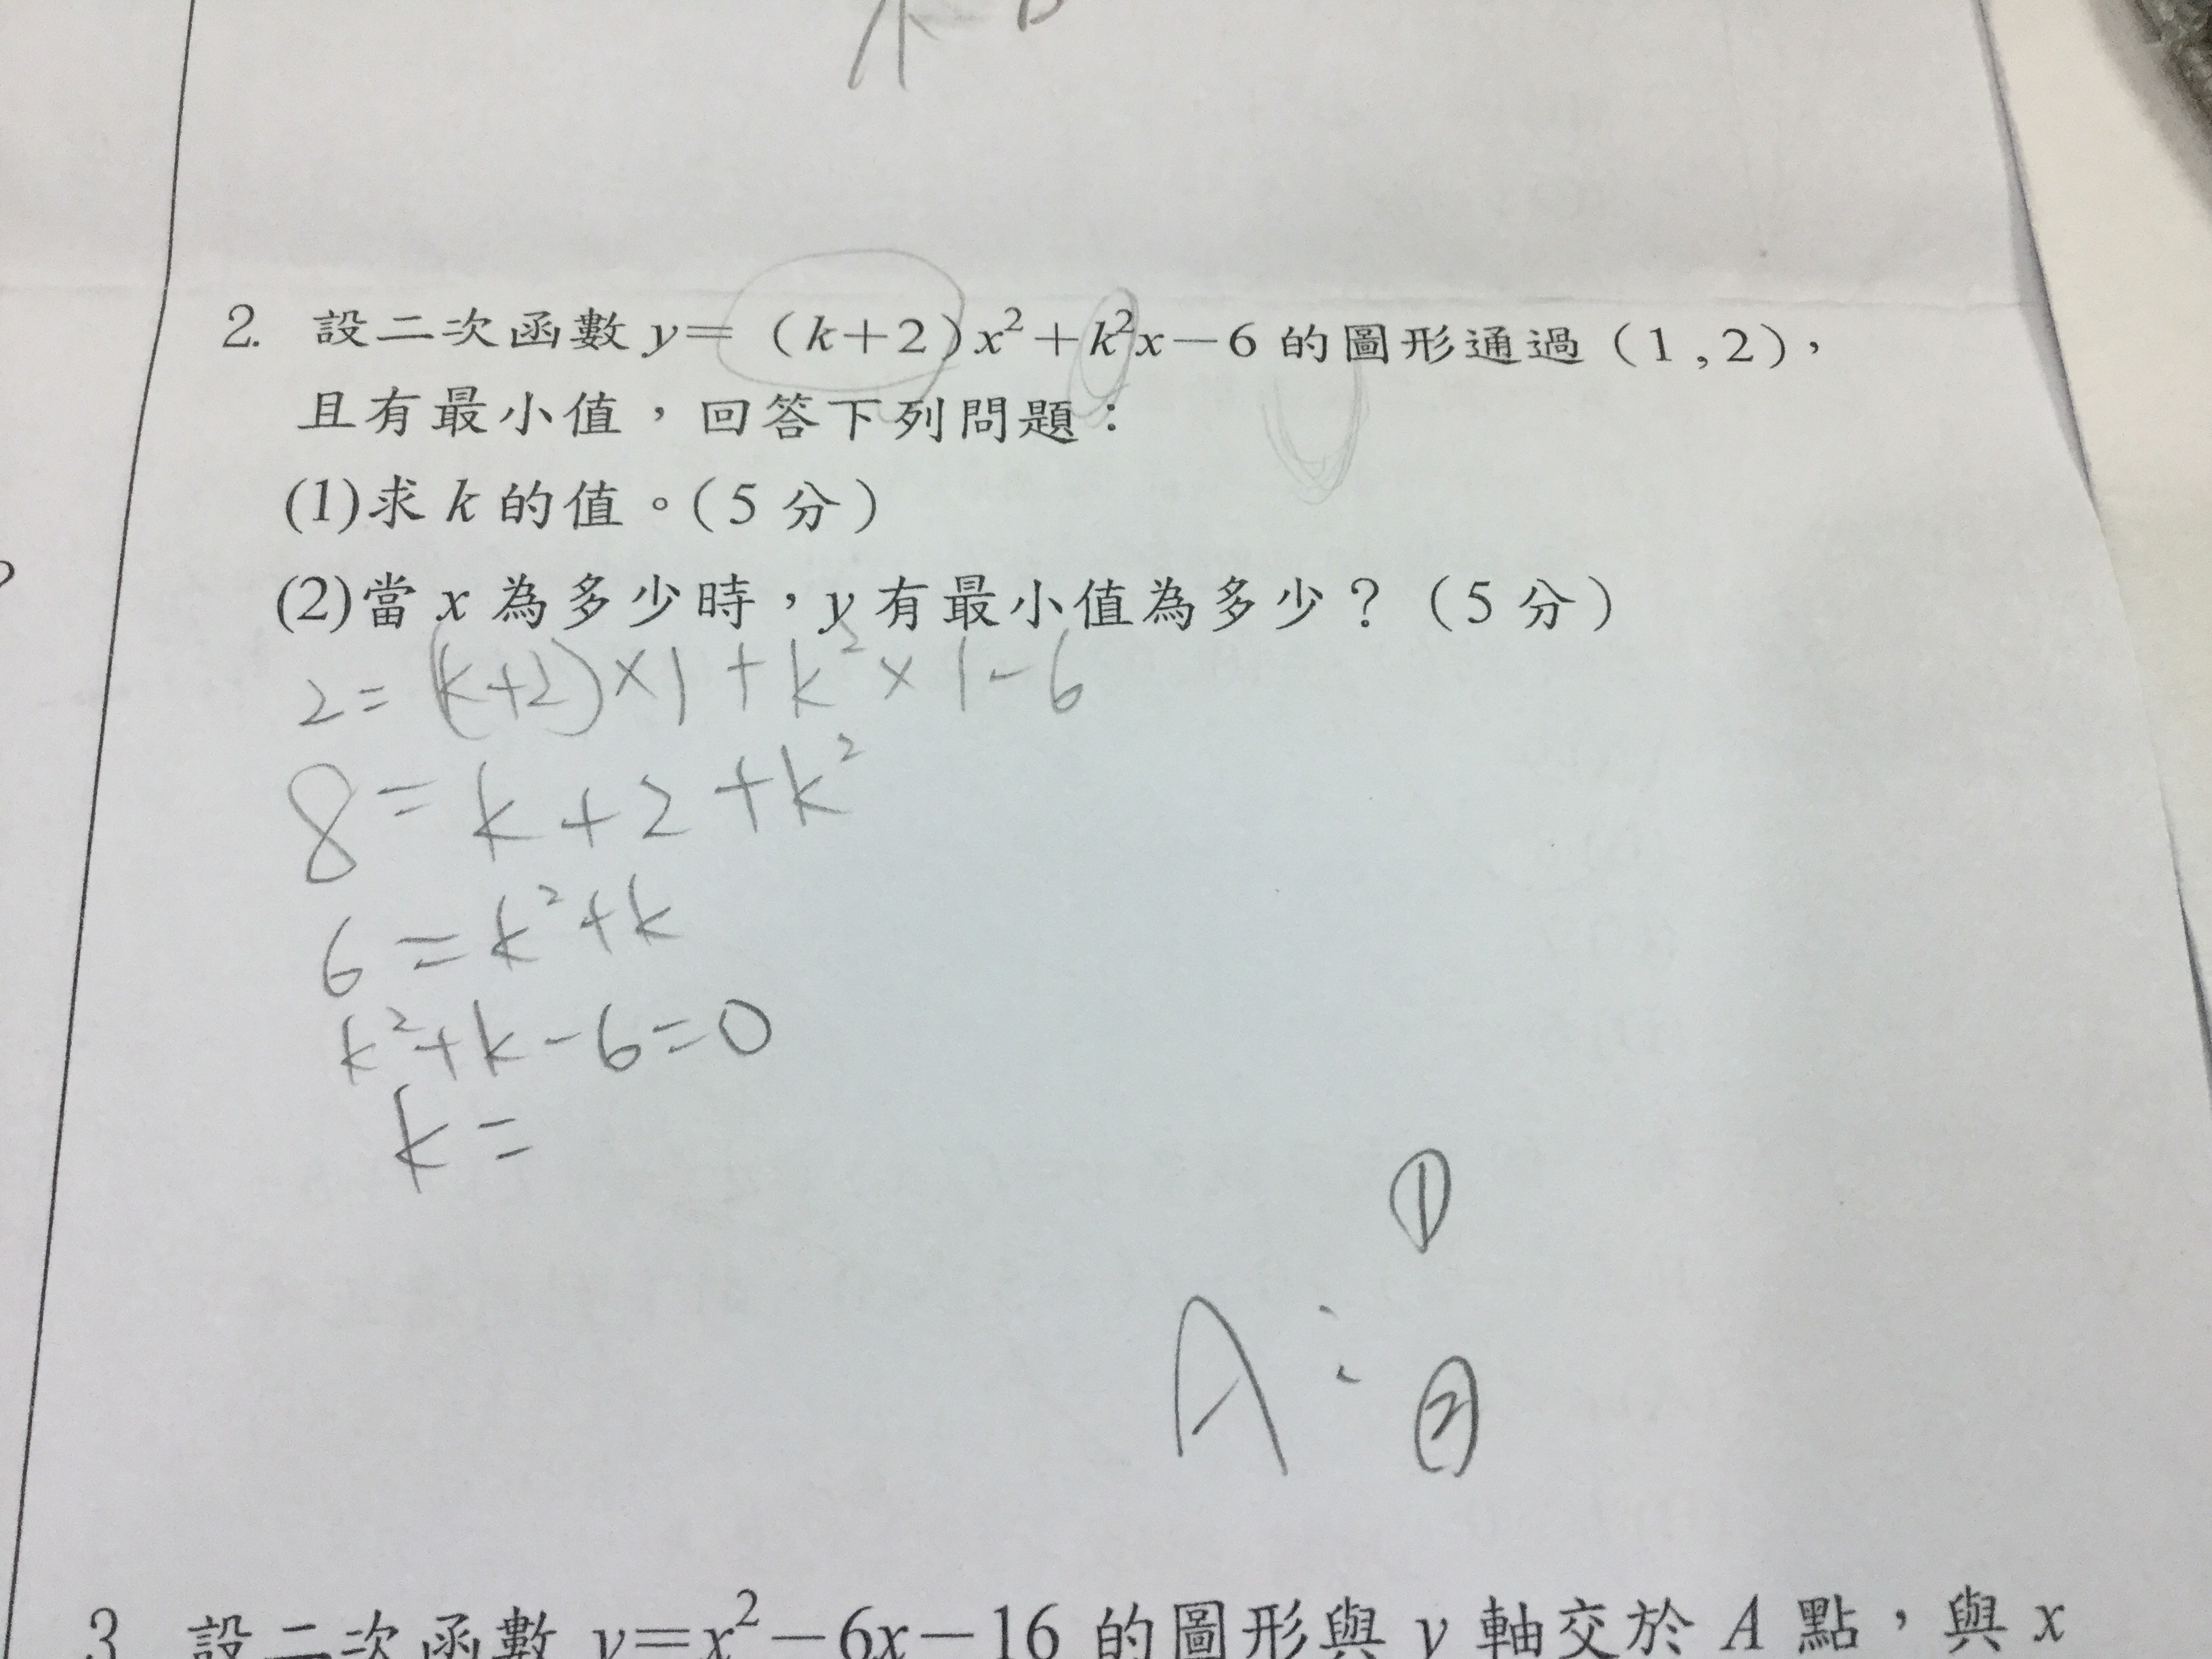 2. 設二次函數 y=（k+2）x²+k²x-6 的圖形通過（1,2），
且有最小值，回答下列問題：
(1)求 k 的值。（5 分）
(2)當 x 為多少時，y 有最小值為多少？（5 分）
2=(k+2)×1+k²×1-6
8=k+2+k²
6=k²+k
k²+k-6=0
k=
①
A:
②
3. 設二次函數 y=x²-6x-16 的圖形與 y 軸交於 A 點，與 x